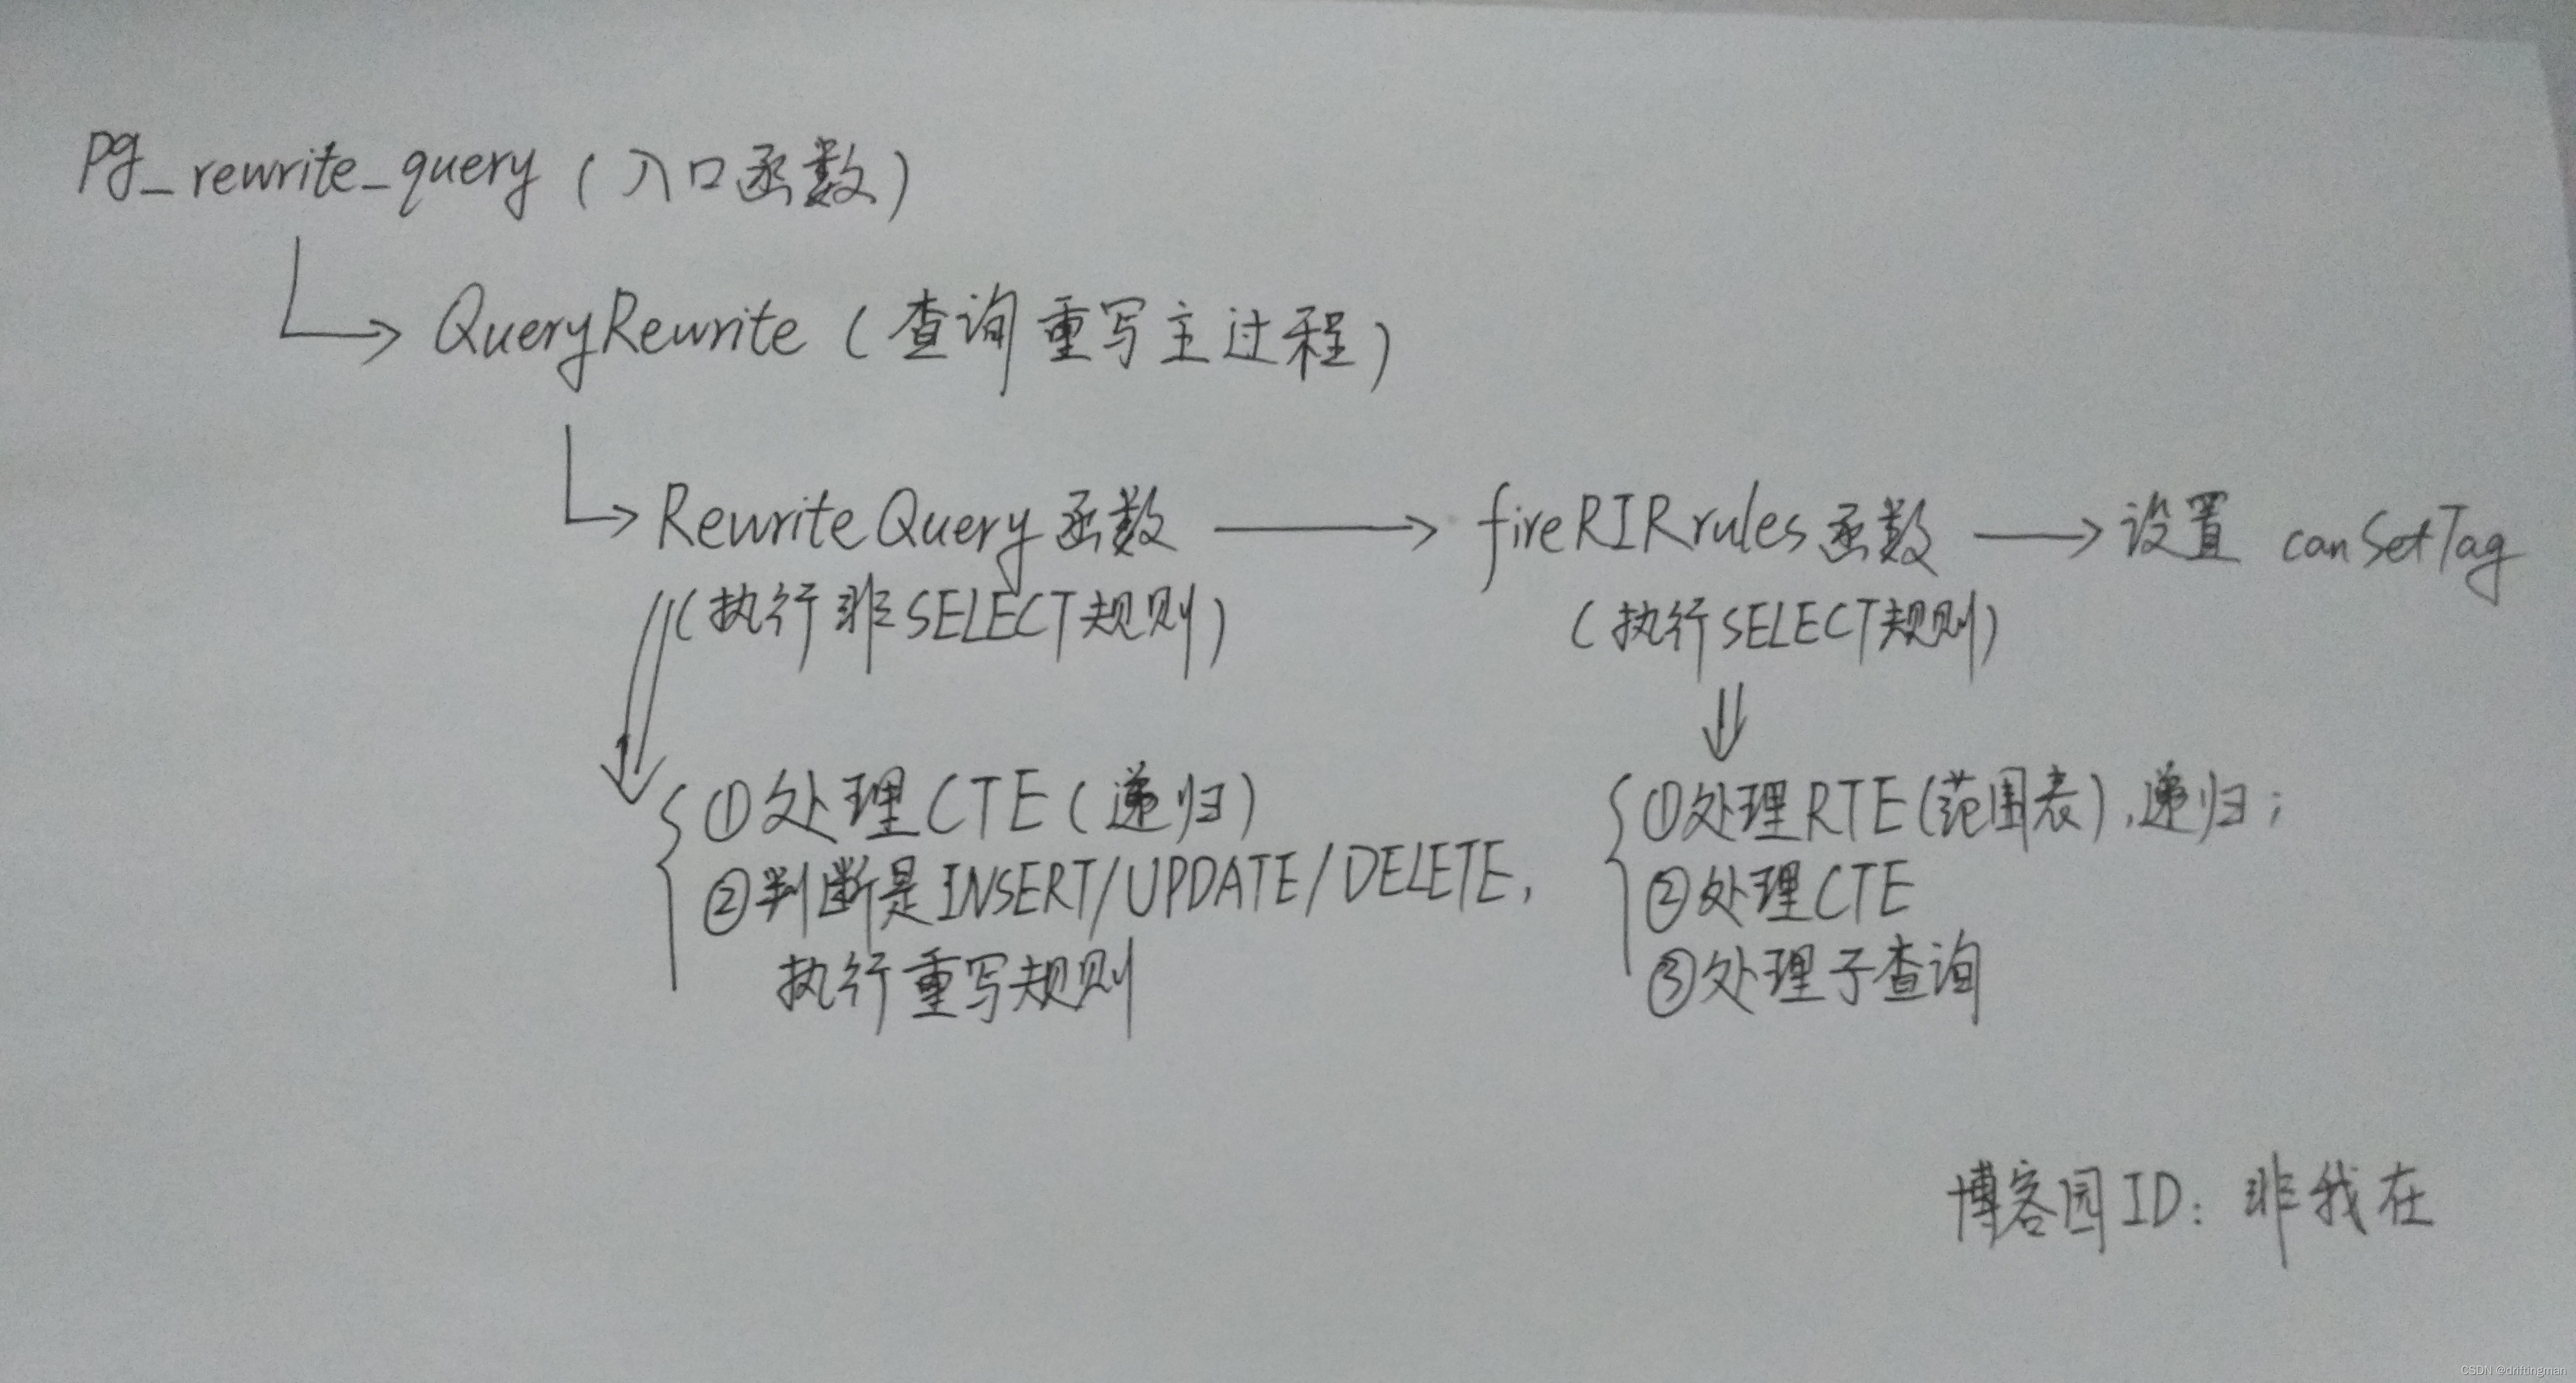 pg_rewrite_query (入口函数)
QueryRewrite (查询重写主过程)
RewriteQuery函数 fireRIRrules函数 设置 canSetTag
(执行非SELECT规则) (执行SELECT规则)
①处理CTE(递归) ①处理RTE(范围表),递归;
②判断是INSERT/UPDATE/DELETE, ②处理CTE
执行重写规则 ③处理子查询
博客园ID: 非我在
CSDN @driftingman